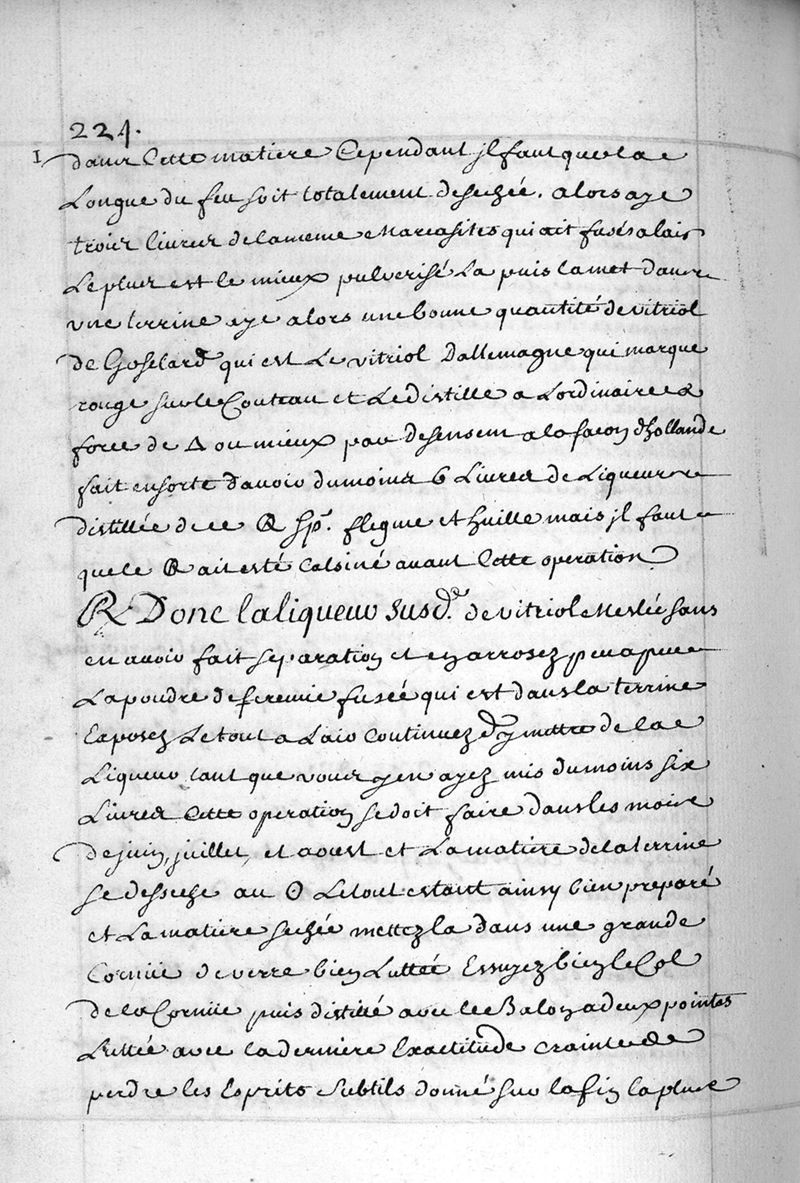 224.
1
dans Cette matiere Cependant jl faut que la
Longue du feu soit totalement desechée. alors aye
trois livres de la meme Marcasites qui ait fusés a lair
Le plus est le mieux pulverisé La puis la met dans
une terrine aye alors une bonne quantité de vitriol
de Goselard qui est Le vitriol Dallemagne qui marque
rouge sur le Couteau et Le distille a Lordinaire a
force de △ ou mieux par desensem a la façon dhollande
fait ensorte davoir du moins 6 Livres de Liqueur
distillée de ce sp. flegme et huille mais jl faut
que le ait esté Calsiné avant Cette operation
℞ Donc la liqueur susd.e de vitriol Meslée sans
en avoir fait separation et en arrosez peu a peu
La poudre de fusée qui est dans la terrine
Exposez Le tout a Lair Continuez dy mettre de la
Liqueur tant que vous y en ayez mis du moins six
Livres Cette operation se doit faire dans les mois
de juin, juillet, et aoust et La matiere de la terrine
se desseche au ʘ Le tout estant ainsy bien preparé
et La matiere sechée mettez la dans une grande
Cornue de verre bien Luttée Essuyez bien le Col
de la Cornue puis distillé avec le Balon a deux pointes
Luttée avec la derniere Exactitude crainte de
perdre les Esprits subtils donné sur la fin la plus